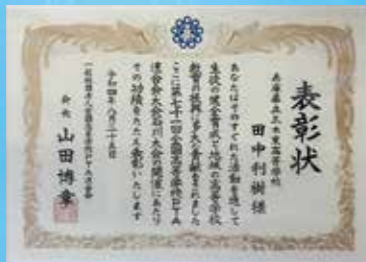 表彰状
兵庫県立三木東高等学校
田中利樹様
あなたはそのすぐれた活動を通して
生徒の健全育成と地域の高等学校
教育の振興に多大な貢献をされました
ここに第七十一回全国高等学校PTA
連合会大会石川大会の開催にあたり
その功績をたたえ表彰いたします
令和四年八月二十五日
一般社団法人全国高等学校PTA連合会
会長 山田博章